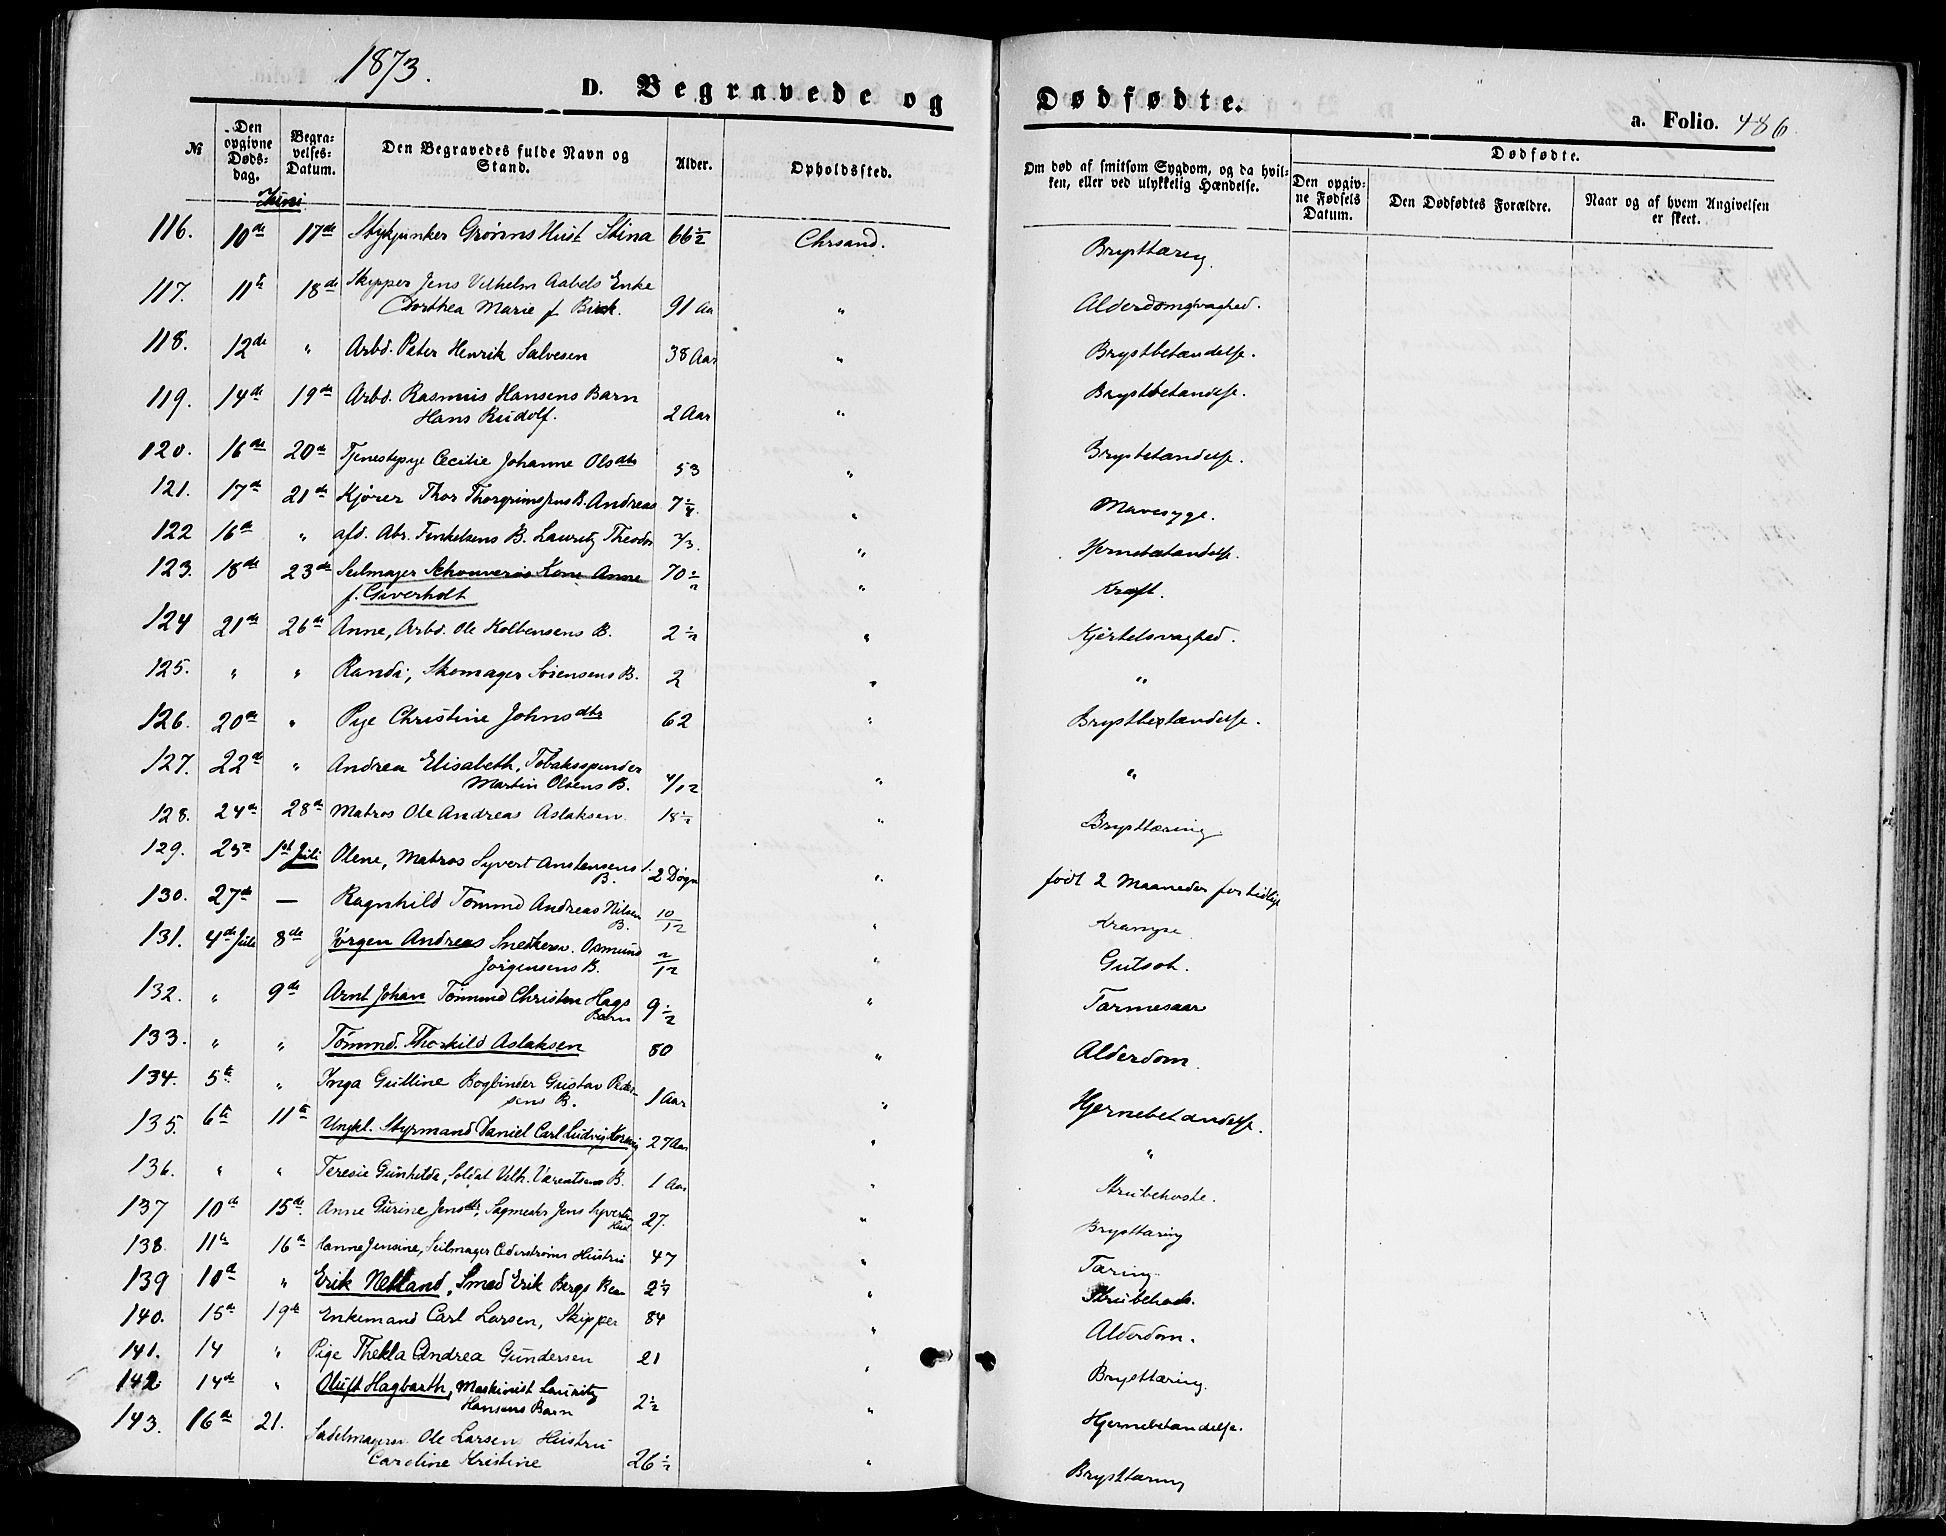 1873.
D. Begravede og Dødfødte.
a. Folio. 486.
№ Den opgivne Døds-dag. Begravelses-Datum. Den Begravedes fulde Navn og Stand. Alder. Opholdssted. Om død af smitsom Sygdom, og da hvilken, eller ved ulykkelig Hændelse. Dødfødte.
Den opgivne Fødsels Datum. Den Dødfødtes Forældre. Naar og af hvem Angivelsen er skeet.
Juni
116. 10de 17de Stykjunker Grønns Hust Stina 66 1/2 Chrsand. Brysttæring
117. 11te 18de Skipper Jens Vilhelm Aabels Enke
Dorthea Marie f. Birk. 91 Aa " Alderdomsvaghed.
118. 12de " Arbd. Peter Henrik Salvesen 38 Aar " Brystbetændelse.
119. 14de 19de Arbd. Rasmus Hansens Barn
Hans Rudolf. 2 Aar " Brystbetændelse.
120. 16de 20de Tjenestepige Cecilie Johanne Olsdtr 53 " Brystbetændelse.
121. 17de 21de Kjører Thor Thorgrimsens B. Andreas 7 1/4 " Mavesyge.
122 16de " afd. Abr. Terkelsens B. Lauritz Theodor " Hjernebetændelse.
123. 18de 23de Seilmager Schouverøs Kone Anne
f. Giverholt 70 1/2 " Kræft.
124 21de 26de Anne, Arbd. Ole Kolbensens B. 2 1/2 " Kjertelsvaghed.
125. " " Randi, Skomager Sørensens B. 2 " "
126. 20de " Pige Christine Johnsdtr 62 " Brystbetændelse.
127. 22de " Andrea Elisabeth, Tobaksspinder
Martin Olsens B. 4/12 " "
128. 24de 28de Matros Ole Andreas Aslaksen 18 1/2 " Brysttæring
129. 25de 1ste Juli Olene, Matros Syvert Anstensens
B. 2 Døgn " født 2 Maaneder for tidlig
130. 27de — Ragnhild Tømmd Andreas Nilsen
B. 10/12 " Krampe
131. 4de Juli 8de Jørgen Andreas Snedkersv. Osmund
Jørgensens B. 2/12 " Gulsot.
132. " 9de Arnt Johan Tømmd Christen Hags
Barn 9 1/2 " Tarmesaar
133. " " Tømmd. Thorkild Aslaksen 80 " Alderdom.
134. 5te " Inga Guttine Bogbinder Gustav Peder-
sens B. 1 Aar " Hjernebetændelse.
135. 6te 11te Ungkl. Styrmand Daniel Carl Ludvig 27 Aar " "
136. " " Teresie Gunhilde, Soldat Vilh. B. 1 Aar " Strubehoste.
137 10de 15de Anne Gurine Jensdtr, Sagmester Jens Syvertsen
Hust 27. " Brysttæring
138. 11te 16de Hanne Jensine, Seilmager Cederstrøms Hustru 47 " Tæring.
139 10de " Erik Netland, Smed Erik Bergs Barn " Strubehoste.
140. 15de 19de Enkemand Carl Larsen, Skipper 84 " Alderdom.
141. 14 " Pige Thekla Andrea Gundersen 21 " Brysttæring.
142. 14de " Oluft Hagbarth, Maskinist Lauritz
Hansens Barn 2 1/2 " Hjernebetændelse.
143. 16de 21. Sadelmagersv. Ole Larsens Hustru
Caroline Kristine 26 1/2 " Brysttæring